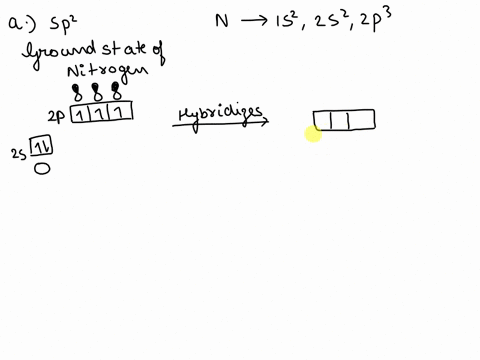 a.) sp²
N → 1s², 2s², 2p³
Ground state of
Nitrogen
2p 1 1 1
Hybridizes
2s 1l